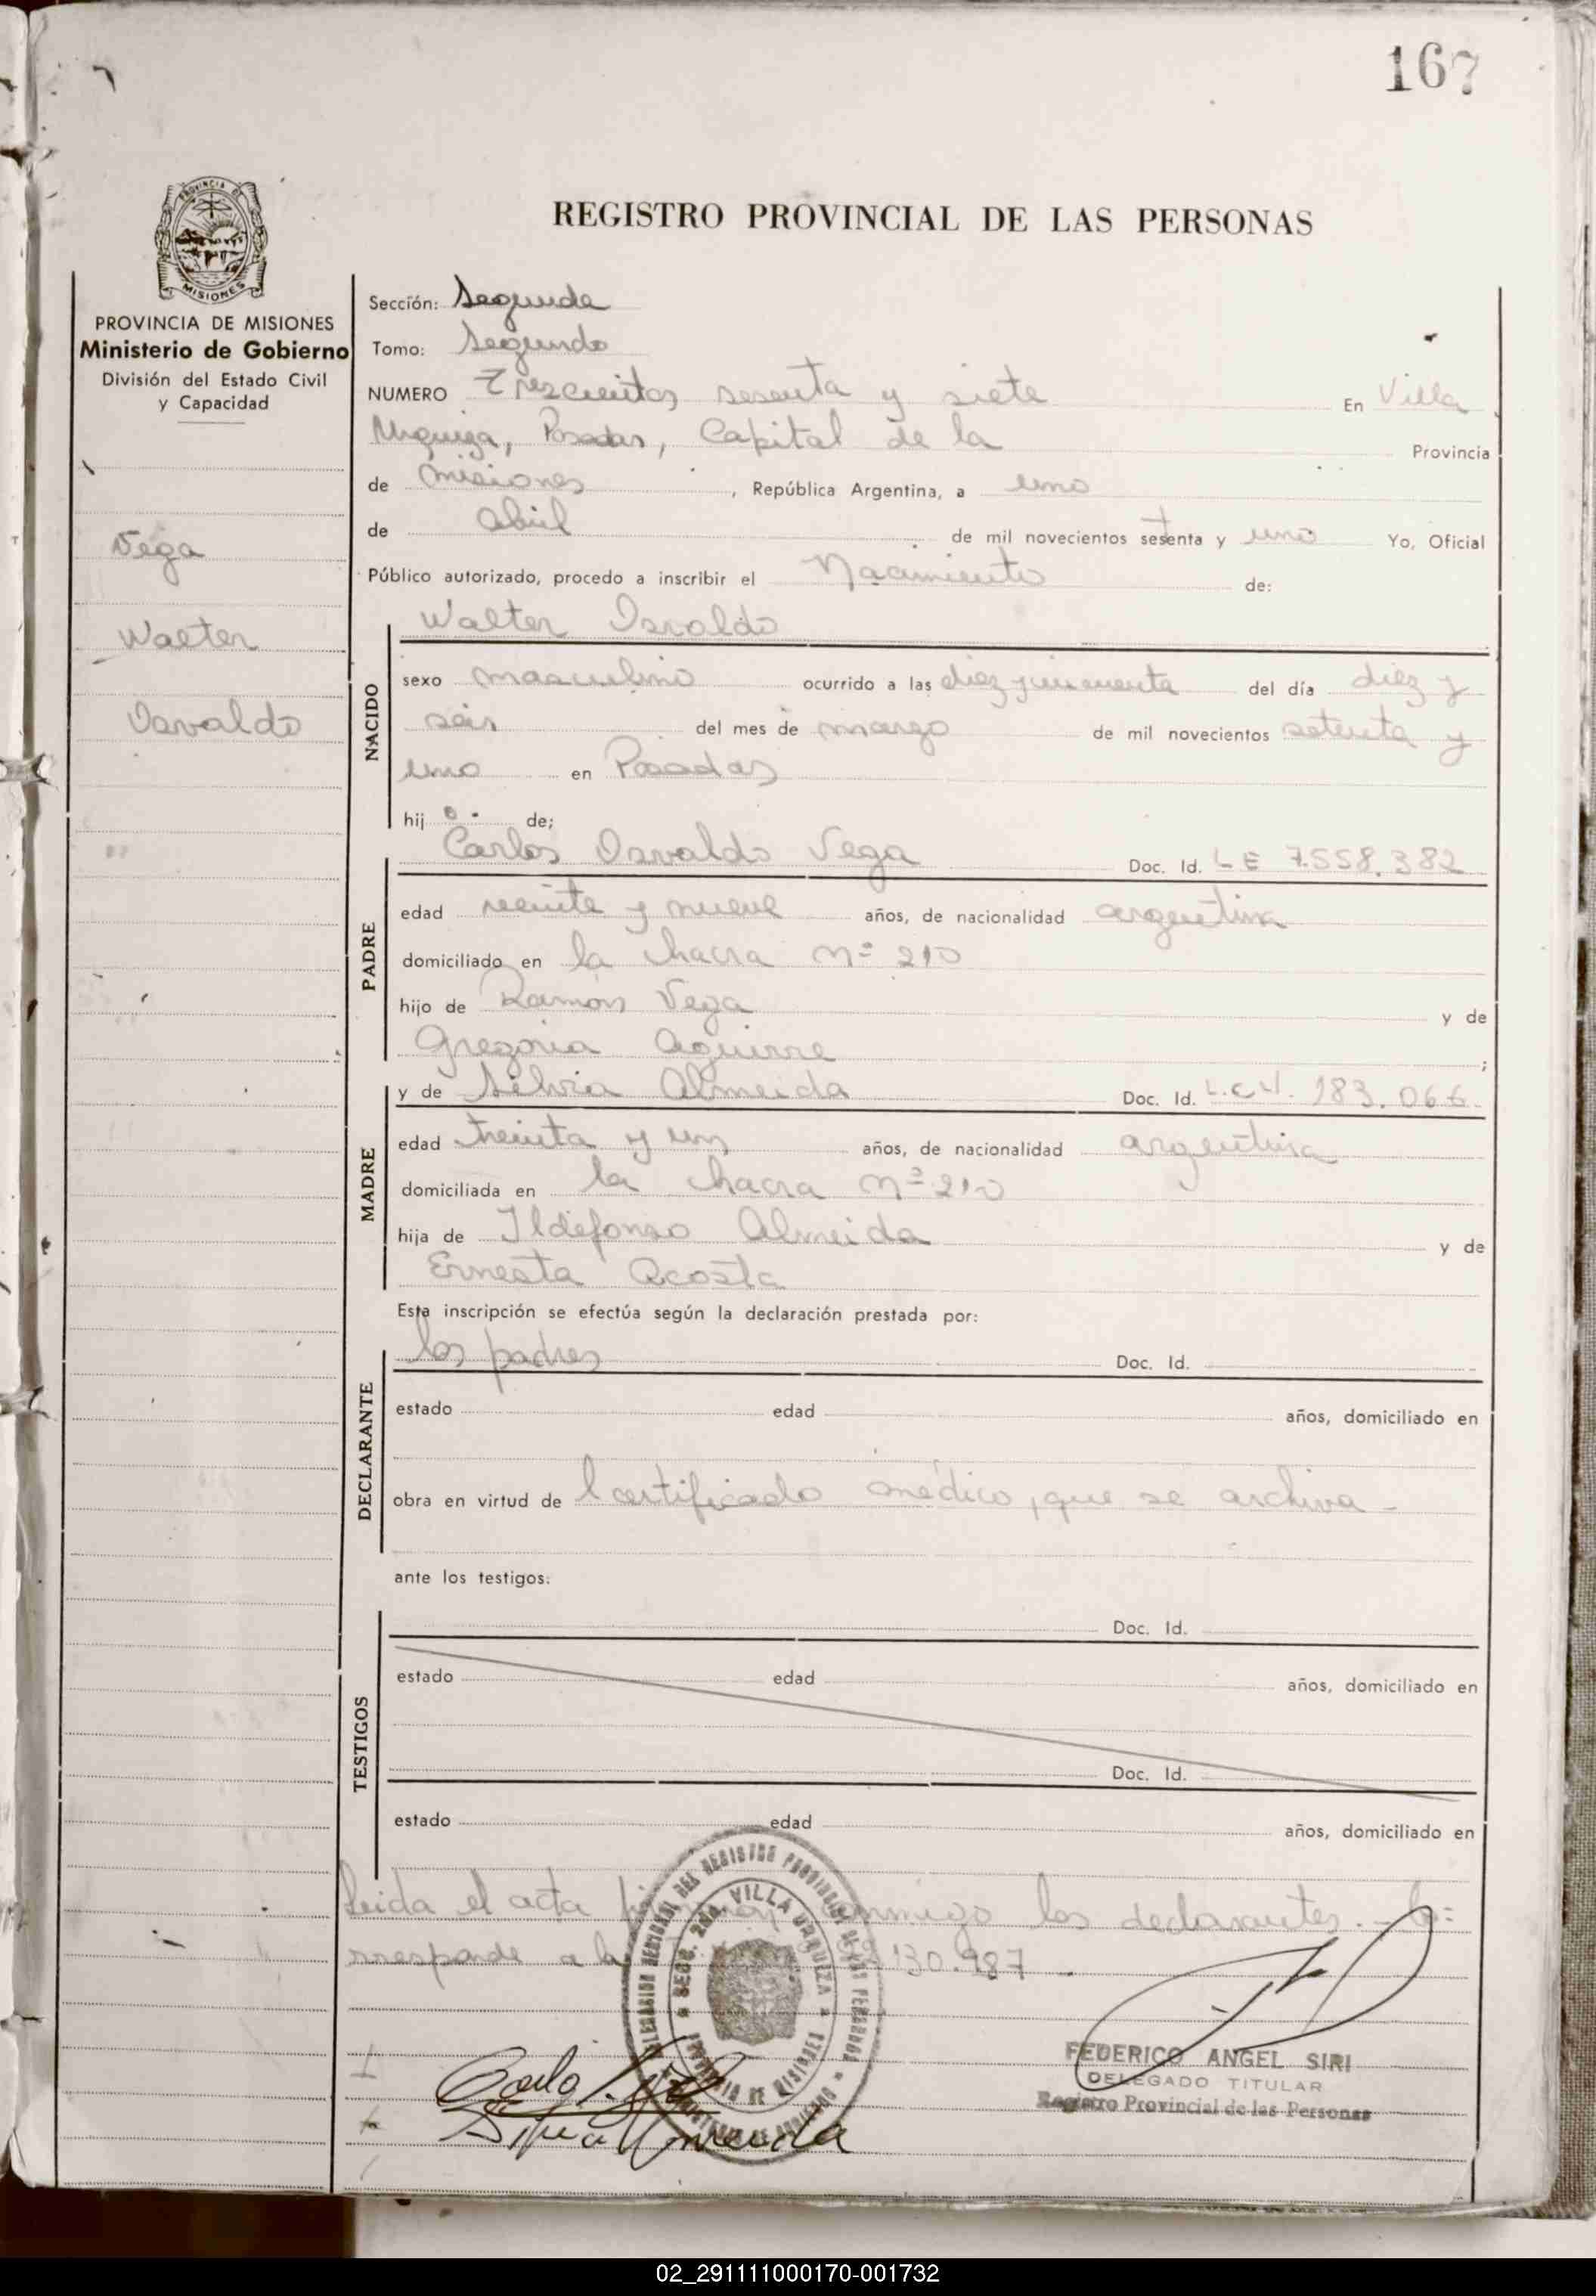 167
PROVINCIA DE
MISIONES
REGISTRO PROVINCIAL DE LAS PERSONAS
PROVINCIA DE MISIONES
Ministerio de Gobierno
División del Estado Civil
y Capacidad
Vega
Walter
Osvaldo
Sección: Segunda
Tomo: Segundo
NUMERO Trescientos sesenta y siete En Villa
Urquiza, Posadas, Capital de la Provincia
de Misiones, República Argentina, a uno
de abril de mil novecientos setenta y uno Yo, Oficial
Público autorizado, procedo a inscribir el Nacimiento de:
NACIDO
Walter Osvaldo
sexo masculino ocurrido a las diez y cincuenta del día diez y
seis del mes de marzo de mil novecientos setenta y
uno en Posadas
hijo de;
PADRE
Carlos Osvaldo Vega Doc. Id. L E 7.558.382
edad veinte y nueve años, de nacionalidad argentina
domiciliado en la chacra nº 210
hijo de Ramón Vega y de
Gregoria Aguirre;
MADRE
y de Silvia Almeida Doc. Id. L.C 4.183.066.
edad treinta y un años, de nacionalidad argentina
domiciliada en la chacra nº 210
hija de Ildefonso Almeida y de
Ernesta Acosta
Esta inscripción se efectúa según la declaración prestada por:
DECLARANTE
los padres Doc. Id.
estado edad años, domiciliado en
obra en virtud de l certificado médico, que se archiva -
ante los testigos:
TESTIGOS
Doc. Id.
estado edad años, domiciliado en
Doc. Id.
estado edad años, domiciliado en
Leida el acta conmigo los declarantes. - Co=
rresponde a la 22.130.987
DELEGACION REGIONAL DEL REGISTRO PROVINCIAL DE LAS PERSONAS
SECC. 2DA. VILLA URQUIZA
PROVINCIA DE MISIONES
MINISTERIO DE GOBIERNO
Silvia Almeida
FEDERICO ANGEL SIRI
DELEGADO TITULAR
Registro Provincial de las Personas
02_291111000170-001732